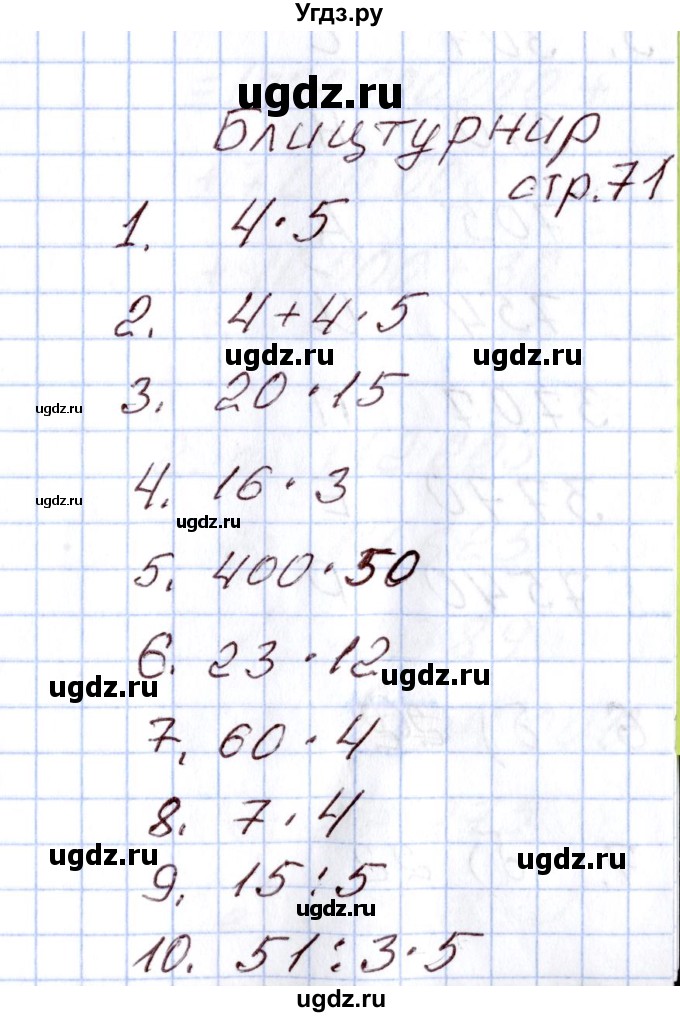 Угдз.ру
ugdz.ru
Блицтурнир
стр.71
1. 4·5
2. 4+4·5
ugdz.ru ugdz.ru
ugdz.ru 3. 20·15
ugdz.ru 4. 16·3
ugdz.ru
5. 400·50
6. 23·12
ugdz.ru ugdz.ru
7. 60·4
8. 7·4
ugdz.ru ugdz.ru
9. 15:5
ugdz.ru
10. 51:3·5
ugdz.ru